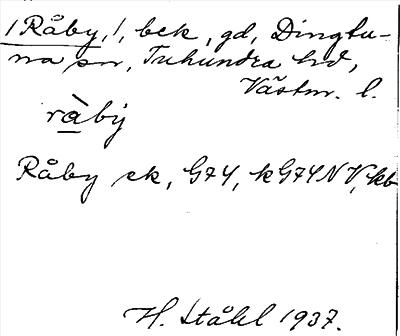 /Råby,/, bek, gd, Dingtu-
na sn, Tuhundra hd,
Västm. l.
ràbÿ
Råby ek, G74, kG74NV, kb
H. Ståhl 1937.